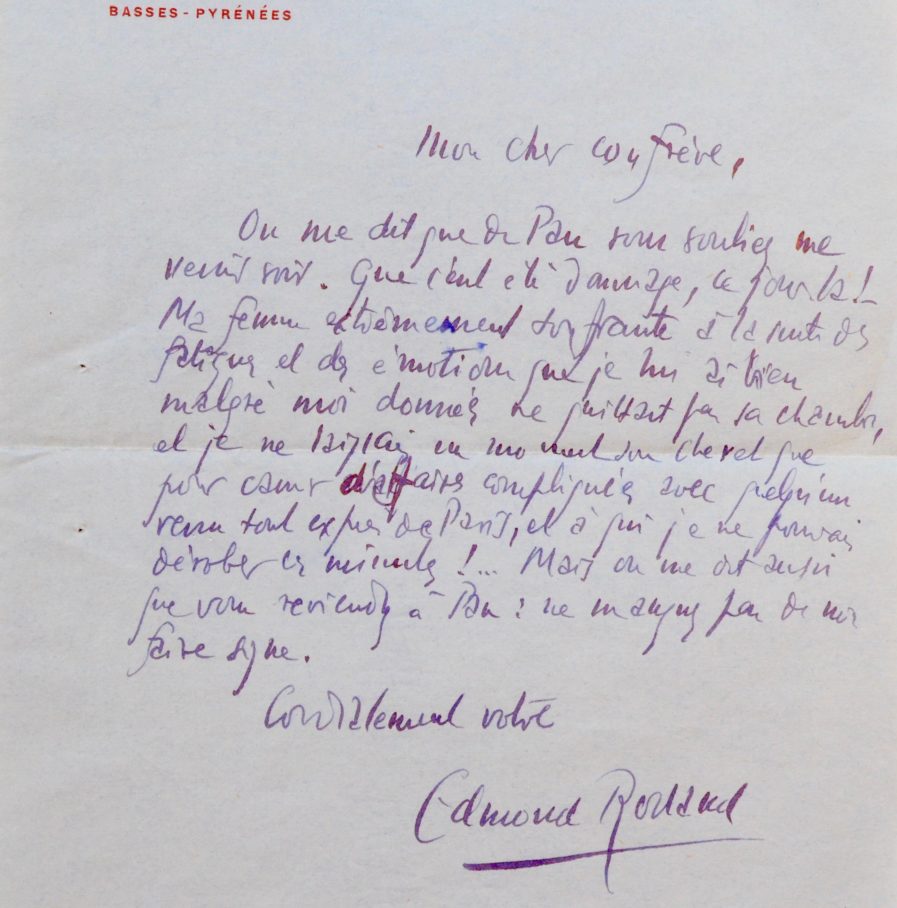 BASSES-PYRÉNÉES
Mon cher confrère,
On me dit que de Pau vous vouliez me
venir voir. Que c'eut été dommage, ce jour là !
Ma femme extrêmement souffrante à la suite des
fatigues et des émotions que je lui ai bien
malgré moi données ne quittait pas sa chambre,
et je ne laissai un moment son chevet que
pour causer d'affaires compliquées avec quelqu'un
venu tout exprès de Paris, et à qui je ne pouvais
dérober ces minutes !... Mais on me dit aussi
que vous reviendrez à Pau : ne manquez pas de me
faire signe.
Cordialement votre
Edmond Rostand